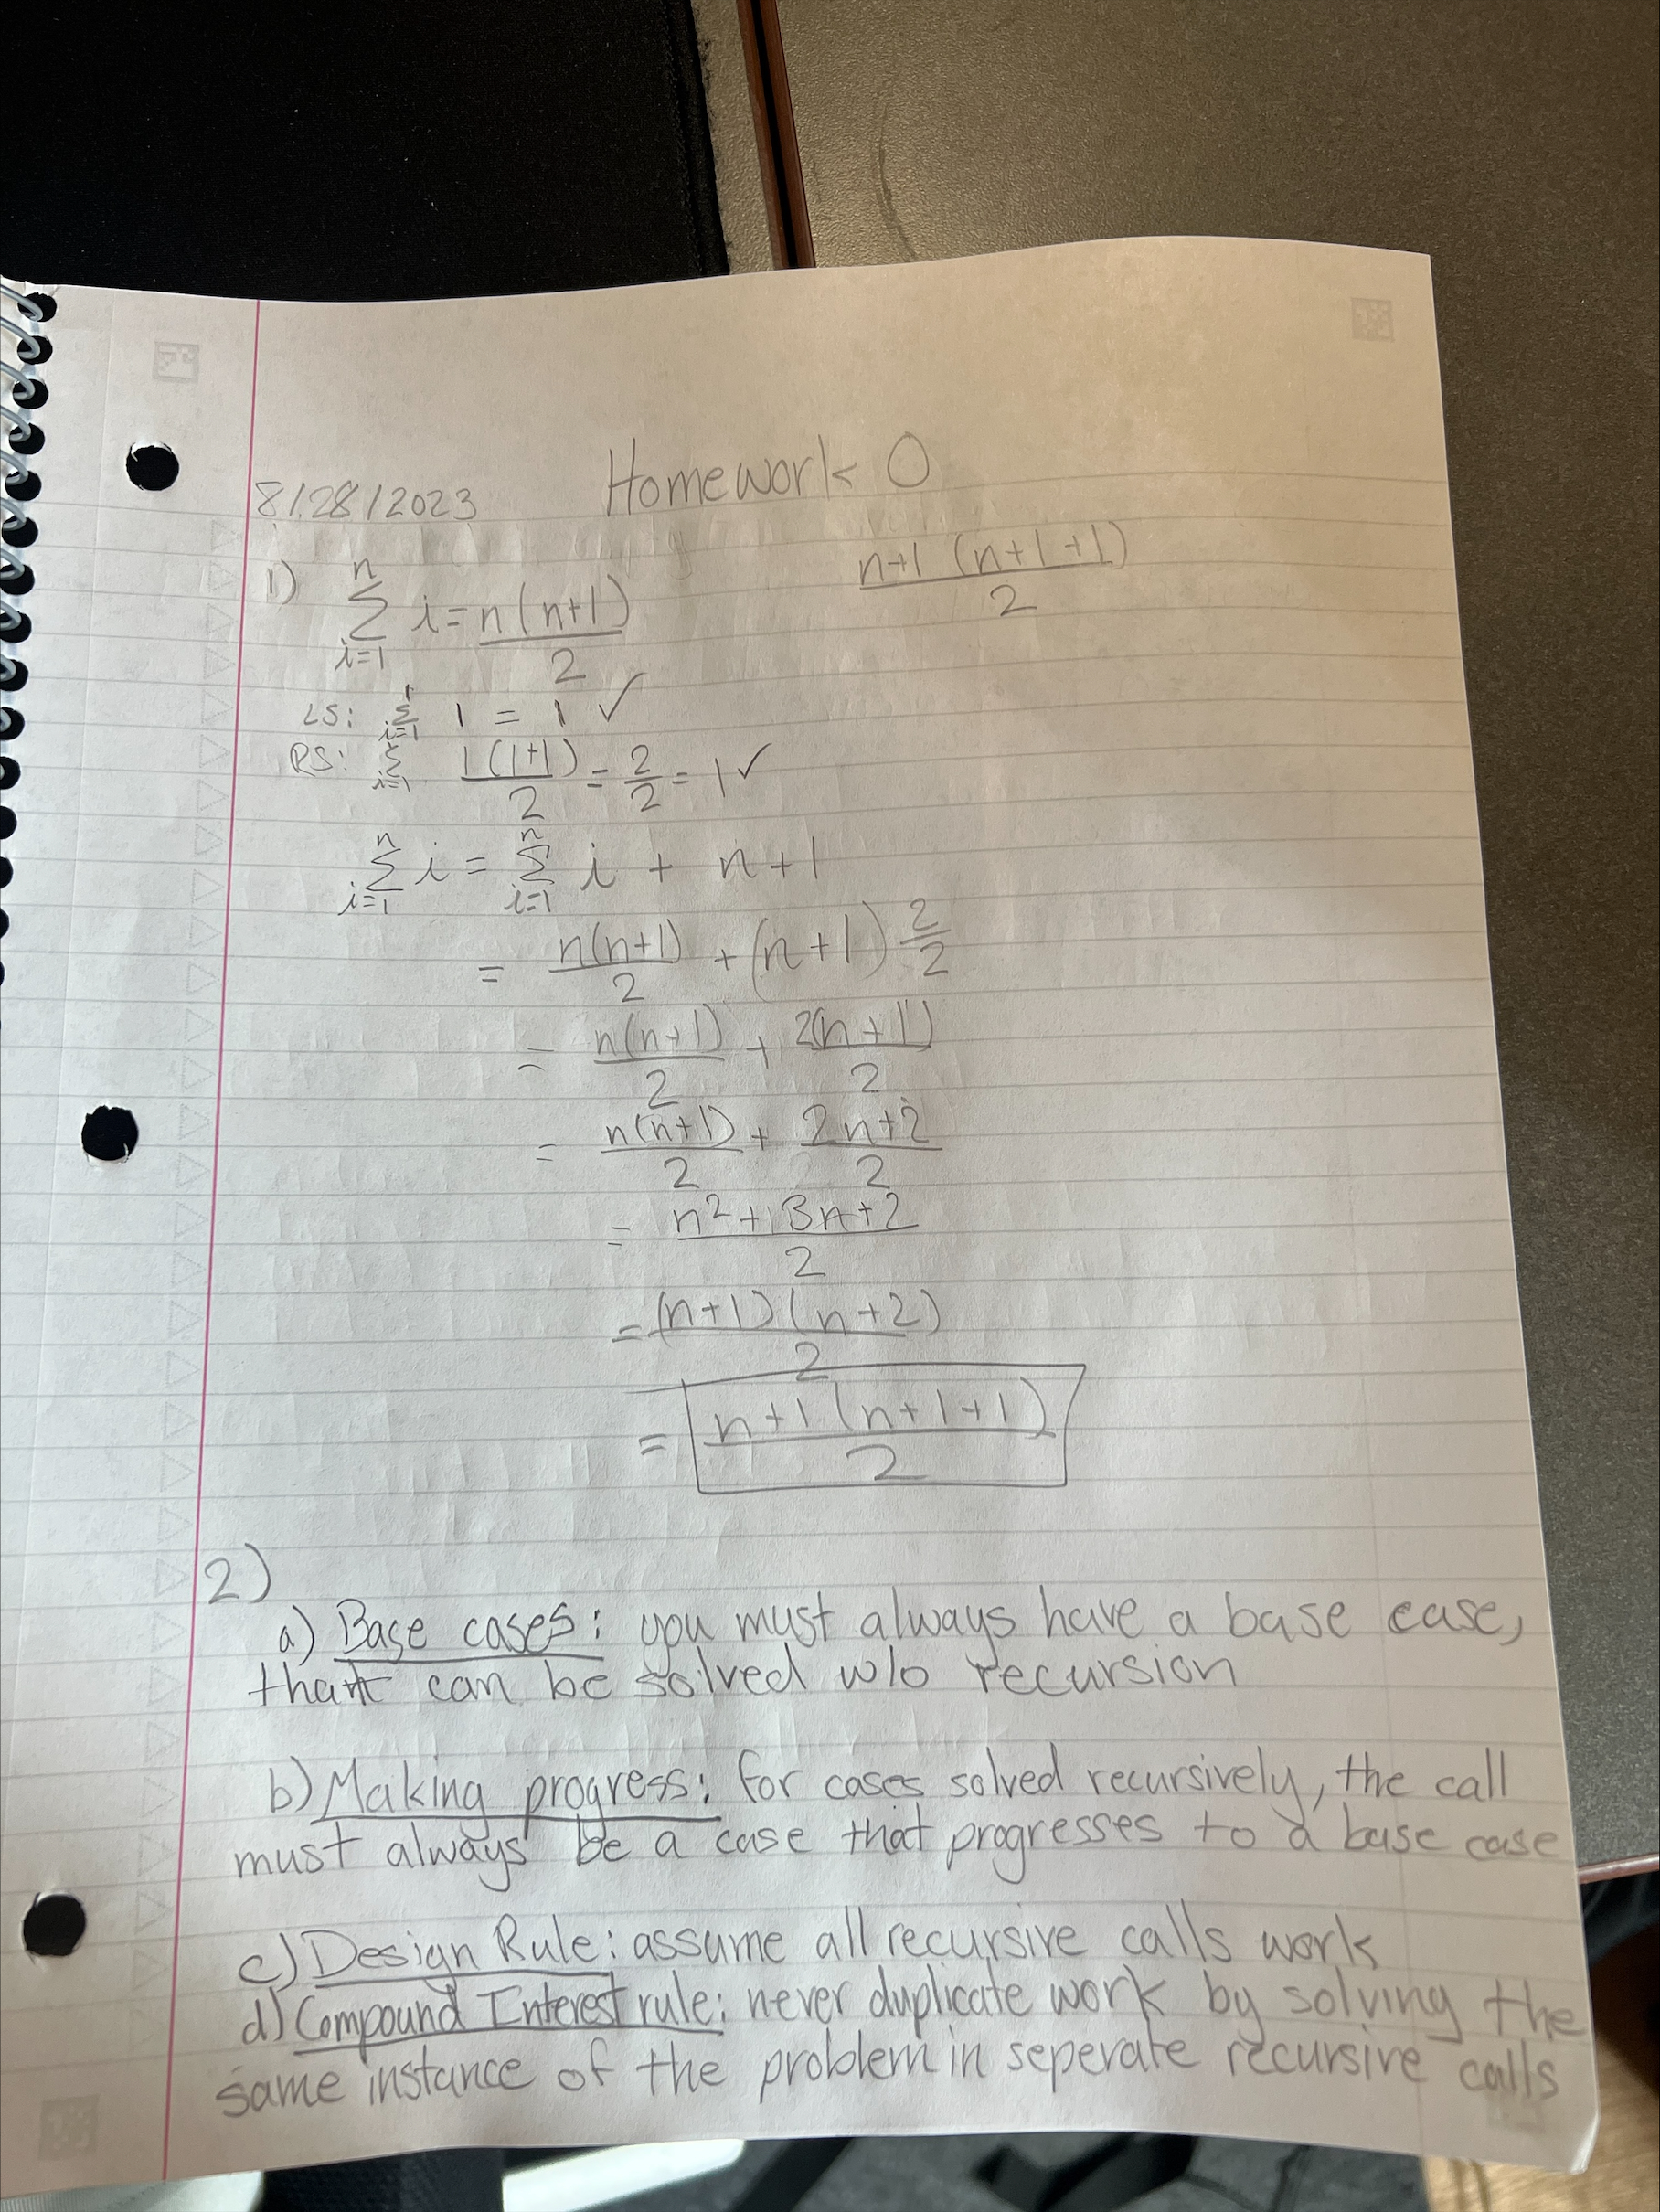 Homework 0
8/28/2023
n+1 (n+1+1)
2
1) n
∑ i = n(n+1)
i=1 2
LS: 1 ∑ i=1 1 = 1 ✓
RS: ∑ i=1 1(1+1)/2 = 2/2 = 1 ✓
n ∑ i=1 i = n ∑ i=1 i + n+1
= n(n+1)/2 + (n+1) 2/2
= n(n+1)/2 + 2(n+1)/2
= n(n+1)/2 + 2n+2/2
= n²+3n+2/2
= (n+1)(n+2)/2
= n+1(n+1+1)/2
2)
a) Base cases: you must always have a base case,
that can be solved w/o recursion
b) Making progress: for cases solved recursively, the call
must always be a case that progresses to a base case
c) Design Rule: assume all recursive calls work
d) Compound Interest rule: never duplicate work by solving the
same instance of the problem in seperate recursive calls